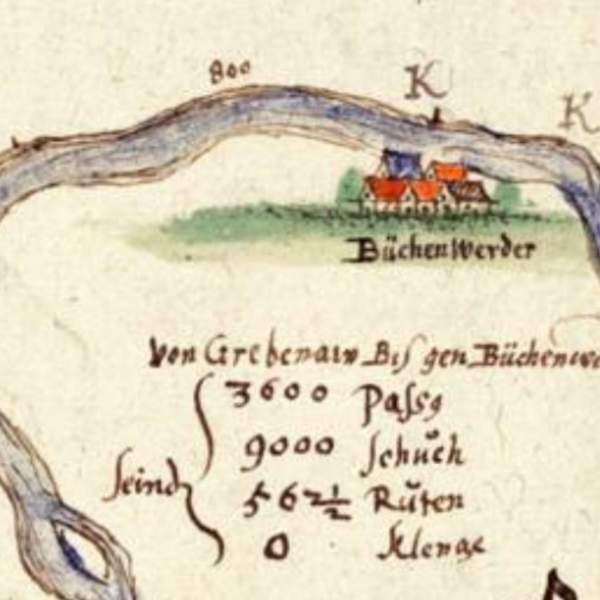 800
K
K
Büchenwerder
Von Grebenaw Biß gen Büchenwe
3600 Passg
9000 schuch
seind
562½ Rüten
0 Klenge